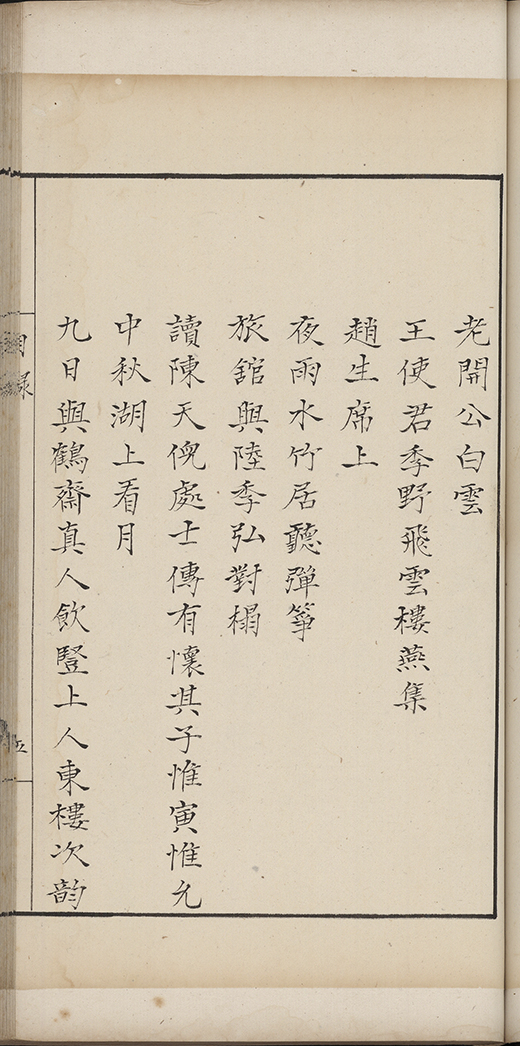 老開公白雲
王使君季野飛雲樓燕集
趙生席上
夜雨水竹居聽彈箏
旅舘與陸季弘對榻
讀陳天倪處士傳有懷其子惟寅惟允
中秋湖上看月
九日與鶴齋真人飲豎上人東樓次韵
目録
五